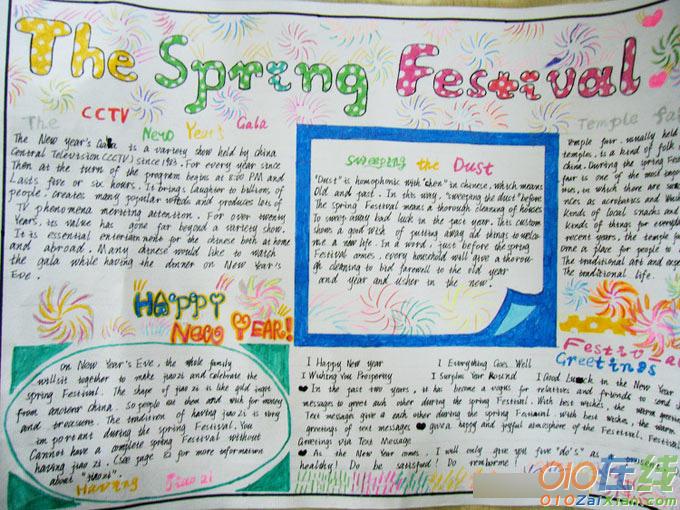 The Spring Festival
The CCTV New Year's Gala
The New year's Gala is a variety show held by china
Central Television (CCTV) since 1983. For every year since
Then at the turn of the program begins at 8:00 PM and
Lasts five or six hours. It brings laughter to billions of
people, creates many popular words and produces lots of
TV phenomena meriting attention. For over twenty
Years, its value has gone far beyond a variety show.
It is essential entertainment for the chinese both at home
and abroad. Many chinese would like to watch
the gala while having the dinner on New Year's
Eve.
HAPPY
NEW YEAR!
On New Year's Eve, the whole family
will sit together to make jiaozi and celebrate the
spring Festival. The shape of jiao zi is like gold ingot
from ancient china. So people eat them and wish for money
and treasure. The tradition of having jiao zi is very
important during the spring Festival. You
Cannot have a complete spring Festival without
having jiao zi. (see page for more information
about "jiaozi".
Having Jiao zi
Sweeping the Dust
"Dust" is homophonic with "chen" in chinese, which means
Old and past. In this way, "sweeping the dust" before
The spring Festival means a thorough cleaning of houses
To sweep away bad luck in the past year. This custom
shows a good wish of putting away old things to welcome
me a new life. In a word, just before the spring
Festival comes, every household will give a thorough
gh cleaning to bid farewell to the old year
and year and usher in the new.
Temple fair
Temple fair, usually held
temples, is a kind of folk
china. During the spring Fes
fair is one of the most impor
in which there are
as acrobatics and
kinds of local snacks and
kinds of things for everyday
recent years, the temple fair
a place for people to
The traditional art and
The traditional life.
Festival
Greetings
I Happy New year I Everything Goes Well
I Wishing You Prosperity I Surplus Year Round I Good Luck in the New Year
In the past two years, it has become a vogue for relatives and friends to send
messages to greet each other during the spring Festival. With best wishes, the warm greetings
Text messages give a each other during the spring Festival. With best wishes, the warm
greetings of text messages given a happy and joyful atmosphere of the Festival. Festival
Greetings via Text Message
As the New Year comes, I will only give you five "do's" as
healthy! Do be satisfied! Do
010在线
010ZaiXian.com